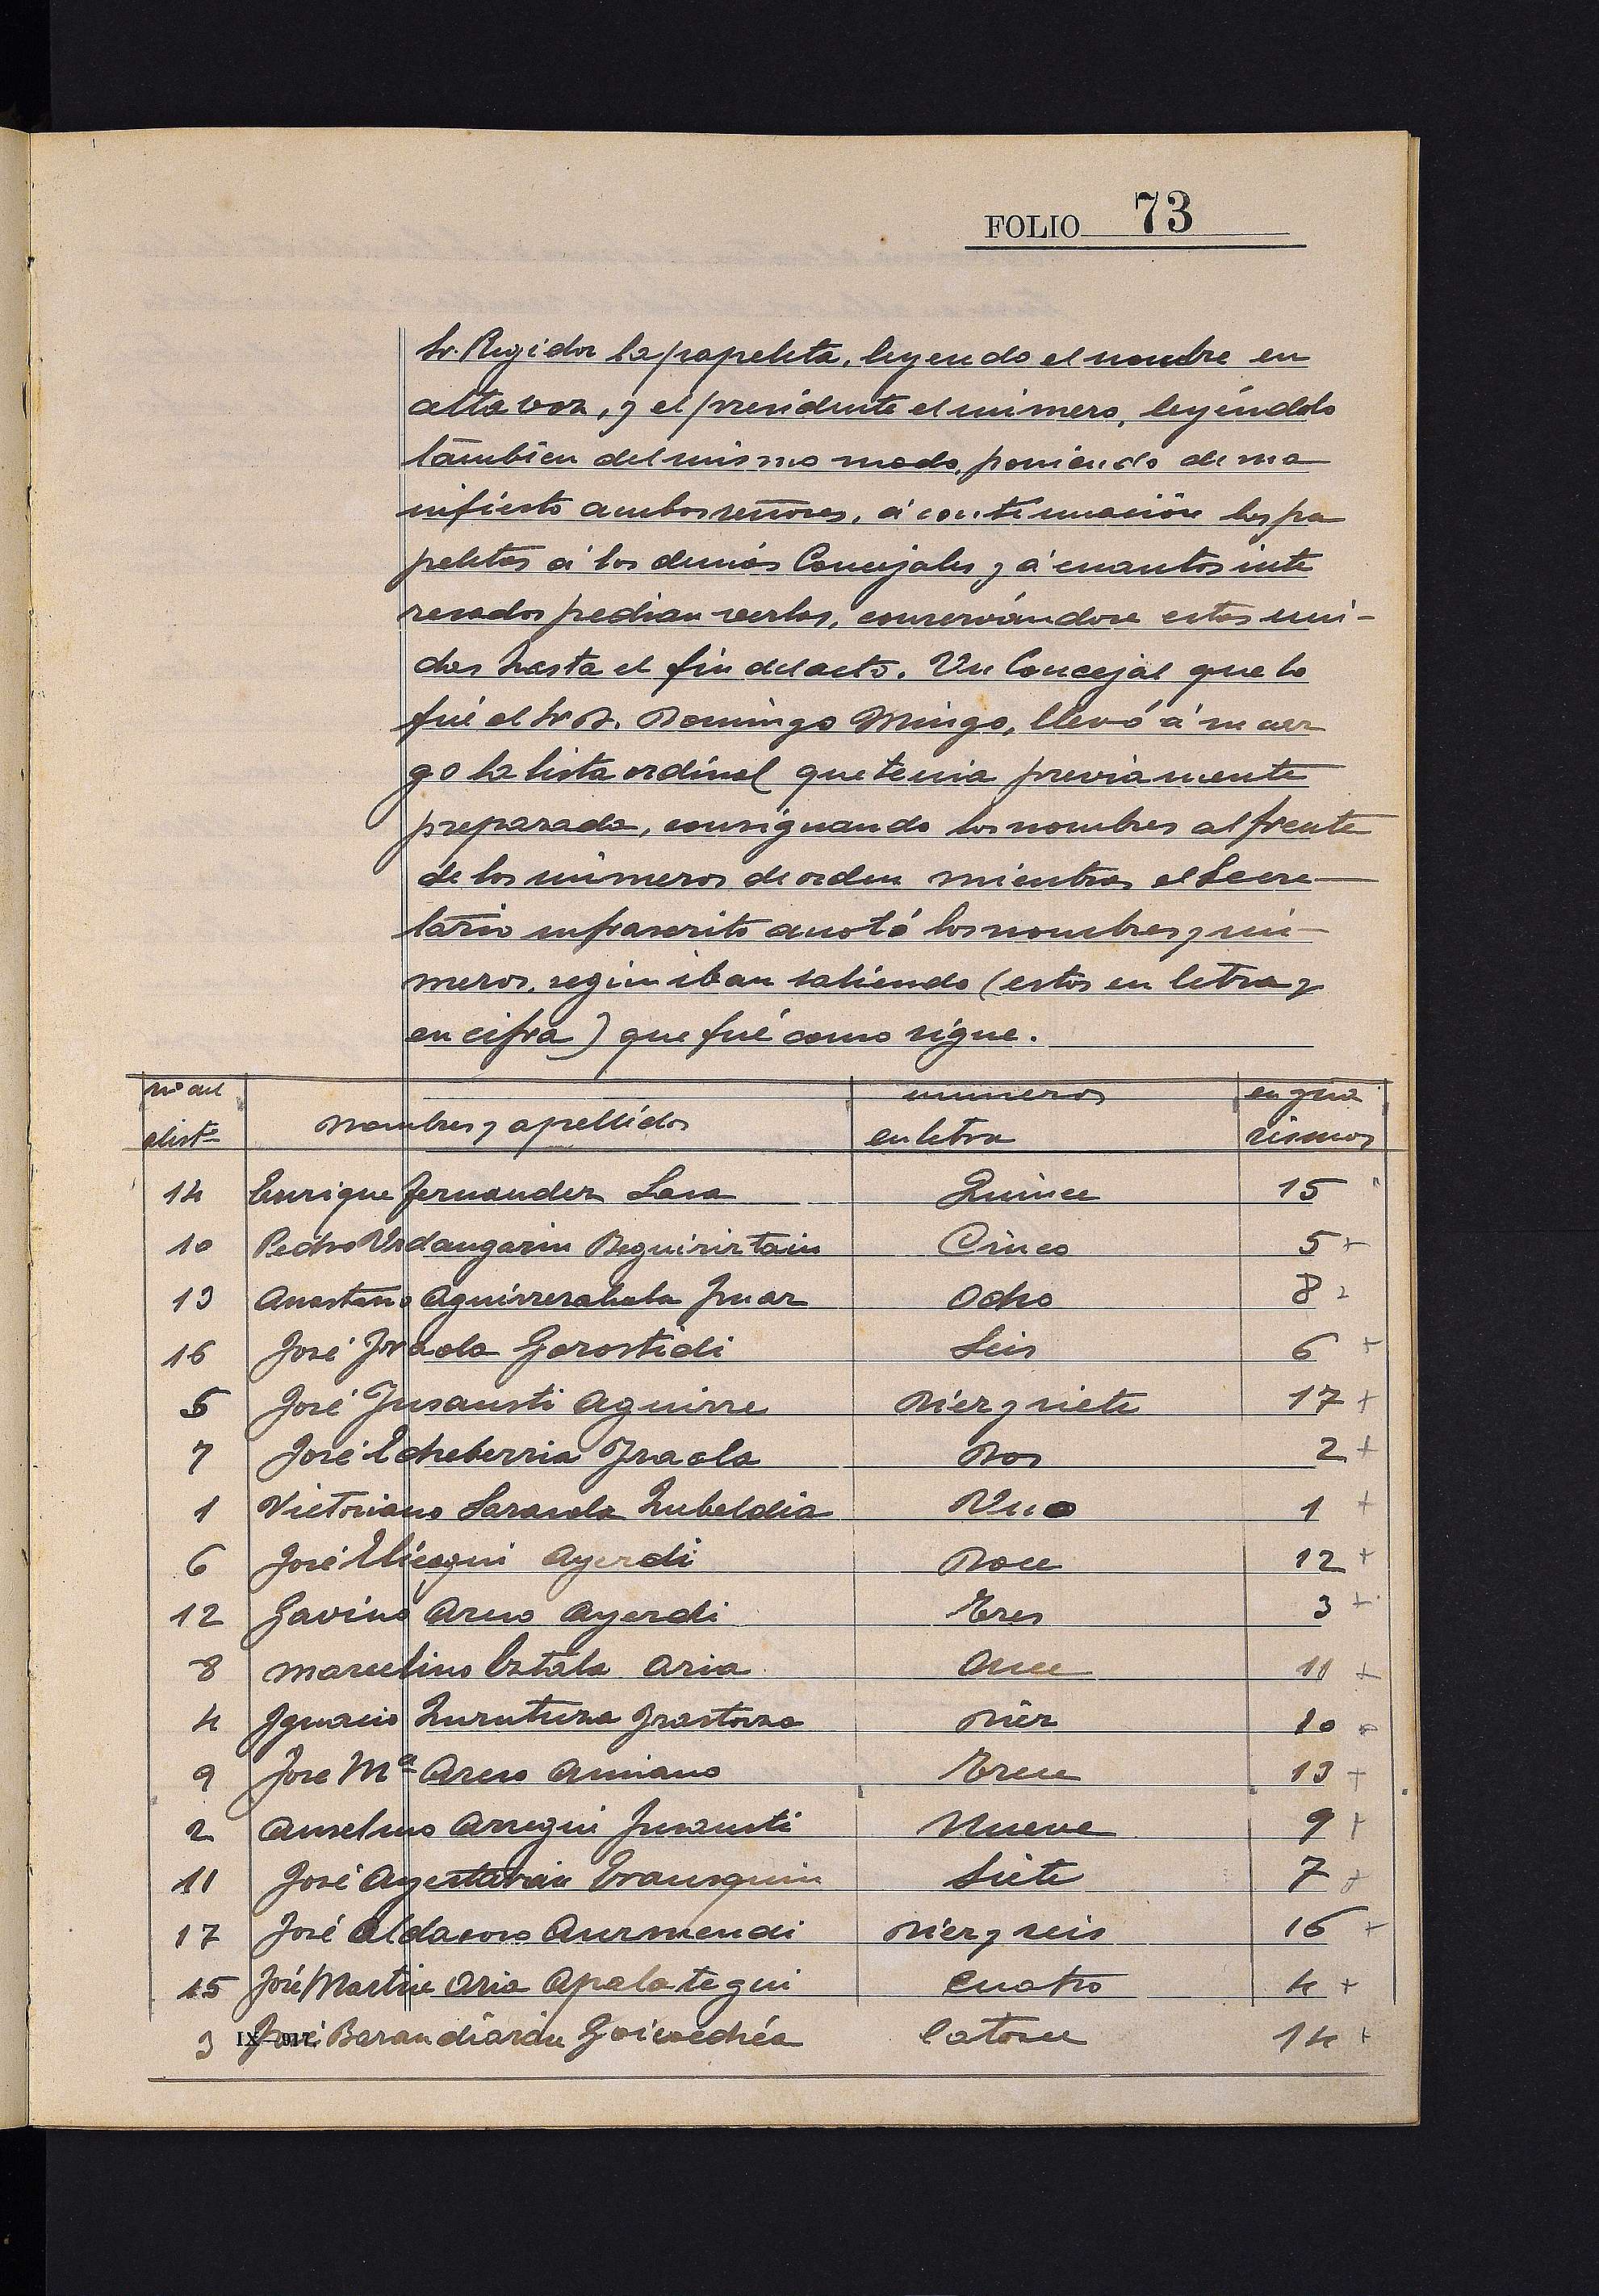 FOLIO 73
Sr. Regidor la papeleta, leyendo el nombre en
alta voz, y el presidente el número, leyéndolo
tambien del mismo modo, poniendo de ma
nifiesto ambos señores, á continuación las pa
peletas á los demás Concejales y á cuantos inte
resados pedian verlas, conservándose estas uni-
das hasta el fin del acto. Un Concejal que lo
fué el Sr D. Domingo Mingo, llevó á su car
go la lista ordinal que tenia previamente
preparada, consignando los nombres al frente
de los números de orden mientras el Secre-
tario infrascrito anotó los nombres y nú-
meros, según iban saliendo (estos en letra y
en cifra) que fué como sigue.
nº del numeros en gua
alistº nombres y apellidos en letra rismos
14 Enrique Fernandez Lasa Quince 15
10 Pedro Urdangarin Beguiristain Cinco 5 +
13 Anastasio Aguirrezabala Ocho 8
16 José Iraola Gorostidi Seis 6 +
5 José Insausti Aguirre Diez y siete 17 +
7 José Echeberria Iraola Dos 2 +
1 Victoriano Sarasola Zubeldia Uno 1 +
6 José Elicegui Ayerdi Doce 12 +
12 Gavino Areso Ayerdi Tres 3 +
8 Marcelino Estala Aria Once 11 +
4 Ignacio Zurutuza Irastorza Diez 10
9 Jose Mª Areso Amiano Trece 13 +
2 Anselmo Arregui Insausti Nueve 9 +
11 José Ayestarán Trausquin Siete 7 +
17 José Aldasoro Aurmendi Diez y seis 16 +
15 José Martin Aria Apalategui Cuatro 4 +
3 José Barandiarán Goicoechéa Catorce 14 +
IX-917.